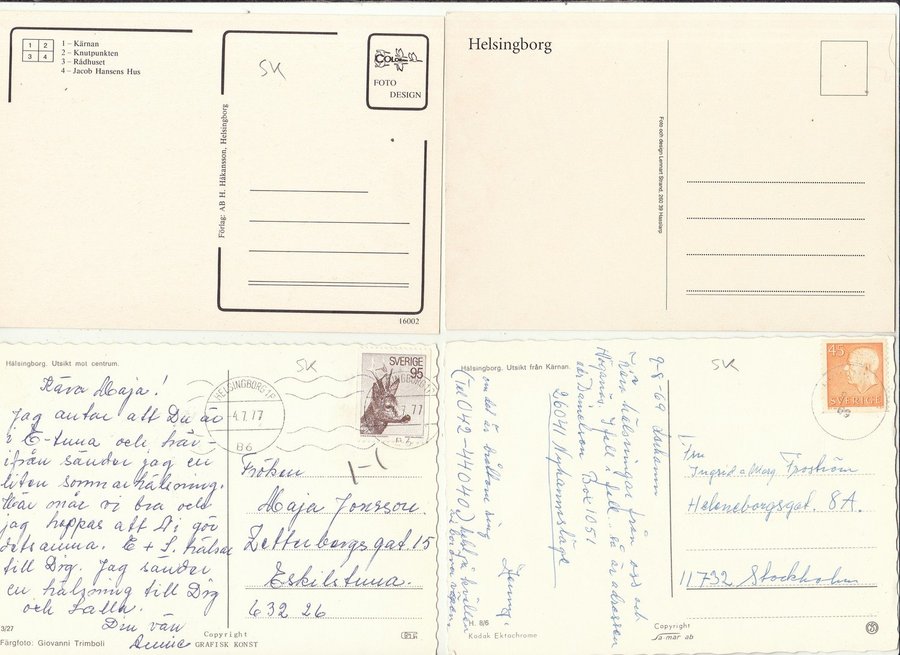 1 2
3 4
1 – Kärnan
2 – Knutpunkten
3 – Rådhuset
4 – Jacob Hansens Hus
SK
COLOR
FOTO
DESIGN
Förlag: AB H. Håkansson, Helsingborg
16002
Helsingborg
Foto och design Lennart Strand, 260 39 Hasslarp
Hälsingborg. Utsikt mot centrum.
SK
HELSINGBORG 1
4.7.77
B6
SVERIGE
95
Kära Maja!
Jag antar att Du är
i E-tuna och här-
ifrån sänder jag en
liten sommarhälsning.
Här mår vi bra och
jag hoppas att Ni gör
detsamma. E + S. hälsar
till Dig. Jag sänder
en hälsning till Dig
och Salla.
Din vän
Fröken
Maja Jonsson
Zetterbergsgat. 15
Eskilstuna.
632 26
3/27
Färgfoto: Giovanni Trimboli
Copyright
GRAFISK KONST
Hälsingborg. Utsikt från Kärnan.
SK
45
SVERIGE
9-8-69
Kära hälsningar från oss och
i fall .. så är adressen
Danielson Box 1051
26041 Nyhamnsläge
om det är bråttom ring
(Tel 042-44040)
Fru
Ingrid o Marg. Froström
Heleneborgsgat. 8 A.
11732 Stockholm
8/6
Kodak Ektochrome
Copyright
Sa-mar ab